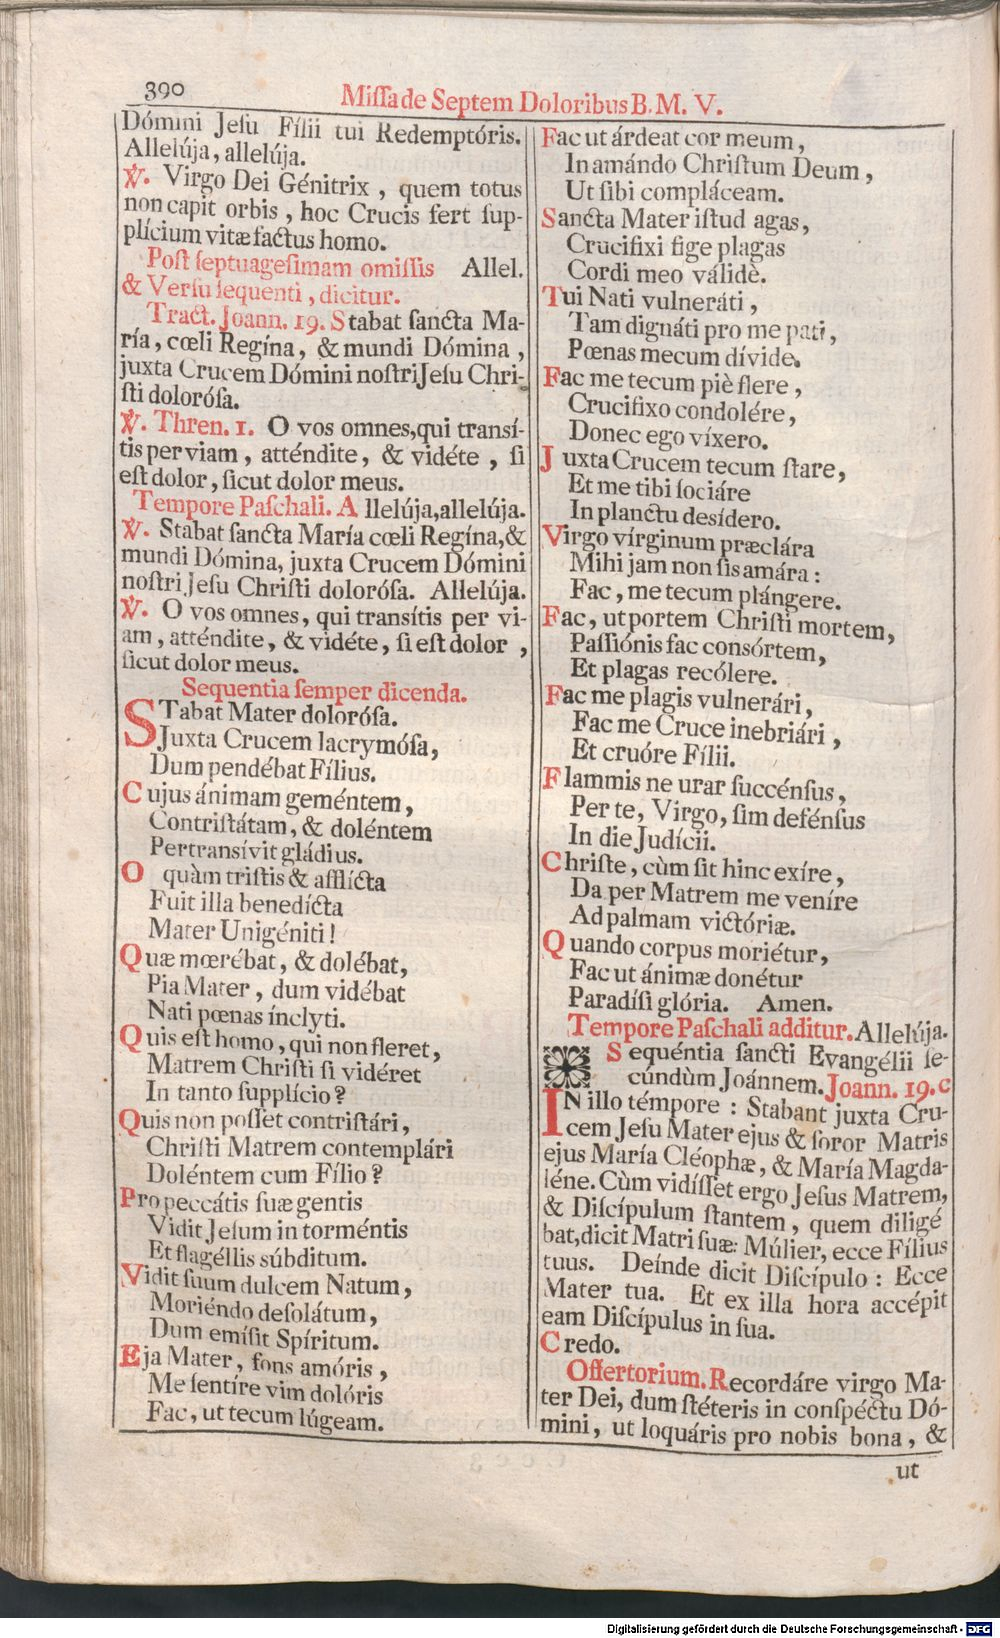 390
Miſſa de Septem Doloribus B. M. V.
Dómini Jeſu Fílii tui Redemptóris.
Allelúja, allelúja.
℣. Virgo Dei Génitrix, quem totus
non capit orbis, hoc Crucis fert ſup-
plícium vitæ factus homo.
Poſt ſeptuageſimam omiſſis Allel.
& Verſu ſequenti, dicitur.
Tract. Joann. 19. Stabat ſancta Ma-
ría, cœli Regína, & mundi Dómina,
juxta Crucem Dómini noſtri Jeſu Chri-
ſti doloróſa.
℣. Thren. 1. O vos omnes, qui transí-
tis per viam, atténdite, & vidéte, ſi
eſt dolor, ſicut dolor meus.
Tempore Paſchali. Allelúja, allelúja.
℣. Stabat ſancta María cœli Regína, &
mundi Dómina, juxta Crucem Dómini
noſtri Jeſu Chriſti doloróſa. Allelúja.
℣. O vos omnes, qui transítis per vi-
am, atténdite, & vidéte, ſi eſt dolor,
ſicut dolor meus.
Sequentia ſemper dicenda.
STabat Mater doloróſa.
Juxta Crucem lacrymóſa,
Dum pendébat Fílius.
Cujus ánimam geméntem,
Contriſtátam, & doléntem
Pertransívit gládius.
O quàm triſtis & afflícta
Fuit illa benedícta
Mater Unigéniti!
Quæ mœrébat, & dolébat,
Pia Mater, dum vidébat
Nati pœnas ínclyti.
Quis eſt homo, qui non fleret,
Matrem Chriſti ſi vidéret
In tanto ſupplício?
Quis non poſſet contriſtári,
Chriſti Matrem contemplári
Doléntem cum Fílio?
Pro peccátis ſuæ gentis
Vidit Jeſum in torméntis
Et flagéllis súbditum.
Vidit ſuum dulcem Natum,
Moriéndo deſolátum,
Dum emíſit Spíritum.
Eja Mater, fons amóris,
Me ſentíre vim dolóris
Fac, ut tecum lúgeam.
Fac ut árdeat cor meum,
In amándo Chriſtum Deum,
Ut ſibi compláceam.
Sancta Mater iſtud agas,
Crucifixi fige plagas
Cordi meo válidè.
Tui Nati vulneráti,
Tam dignáti pro me pati,
Pœnas mecum dívide.
Fac me tecum piè flere,
Crucifixo condolére,
Donec ego víxero.
Juxta Crucem tecum ſtare,
Et me tibi ſociáre
In planctu desídero.
Virgo vírginum præclára
Mihi jam non ſis amára:
Fac, me tecum plángere.
Fac, ut portem Chriſti mortem,
Paſſiónis fac consórtem,
Et plagas recólere.
Fac me plagis vulnerári,
Fac me Cruce inebriári,
Et cruóre Fílii.
Flammis ne urar ſuccénſus,
Per te, Virgo, ſim defénſus
In die Judícii.
Chriſte, cùm ſit hinc exíre,
Da per Matrem me veníre
Ad palmam victóriæ.
Quando corpus moriétur,
Fac ut ánimæ donétur
Paradíſi glória. Amen.
Tempore Paſchali additur. Allelúja.
Sequéntia ſancti Evangélii ſe-
cúndùm Joánnem. Joann. 19. c
IN illo témpore: Stabant juxta Cru-
cem Jeſu Mater ejus & ſoror Matris
ejus María Cléophæ, & María Magda-
léne. Cùm vidíſſet ergo Jeſus Matrem,
& Diſcípulum ſtantem, quem diligé
bat, dicit Matri ſuæ: Múlier, ecce Fílius
tuus. Deínde dicit Diſcípulo: Ecce
Mater tua. Et ex illa hora accépit
eam Diſcípulus in ſua.
Credo.
Offertorium. Recordáre virgo Ma-
ter Dei, dum ſtéteris in conſpéctu Dó-
mini, ut loquáris pro nobis bona, &
ut
Digitalisierung gefördert durch die Deutsche Forschungsgemeinschaft - DFG